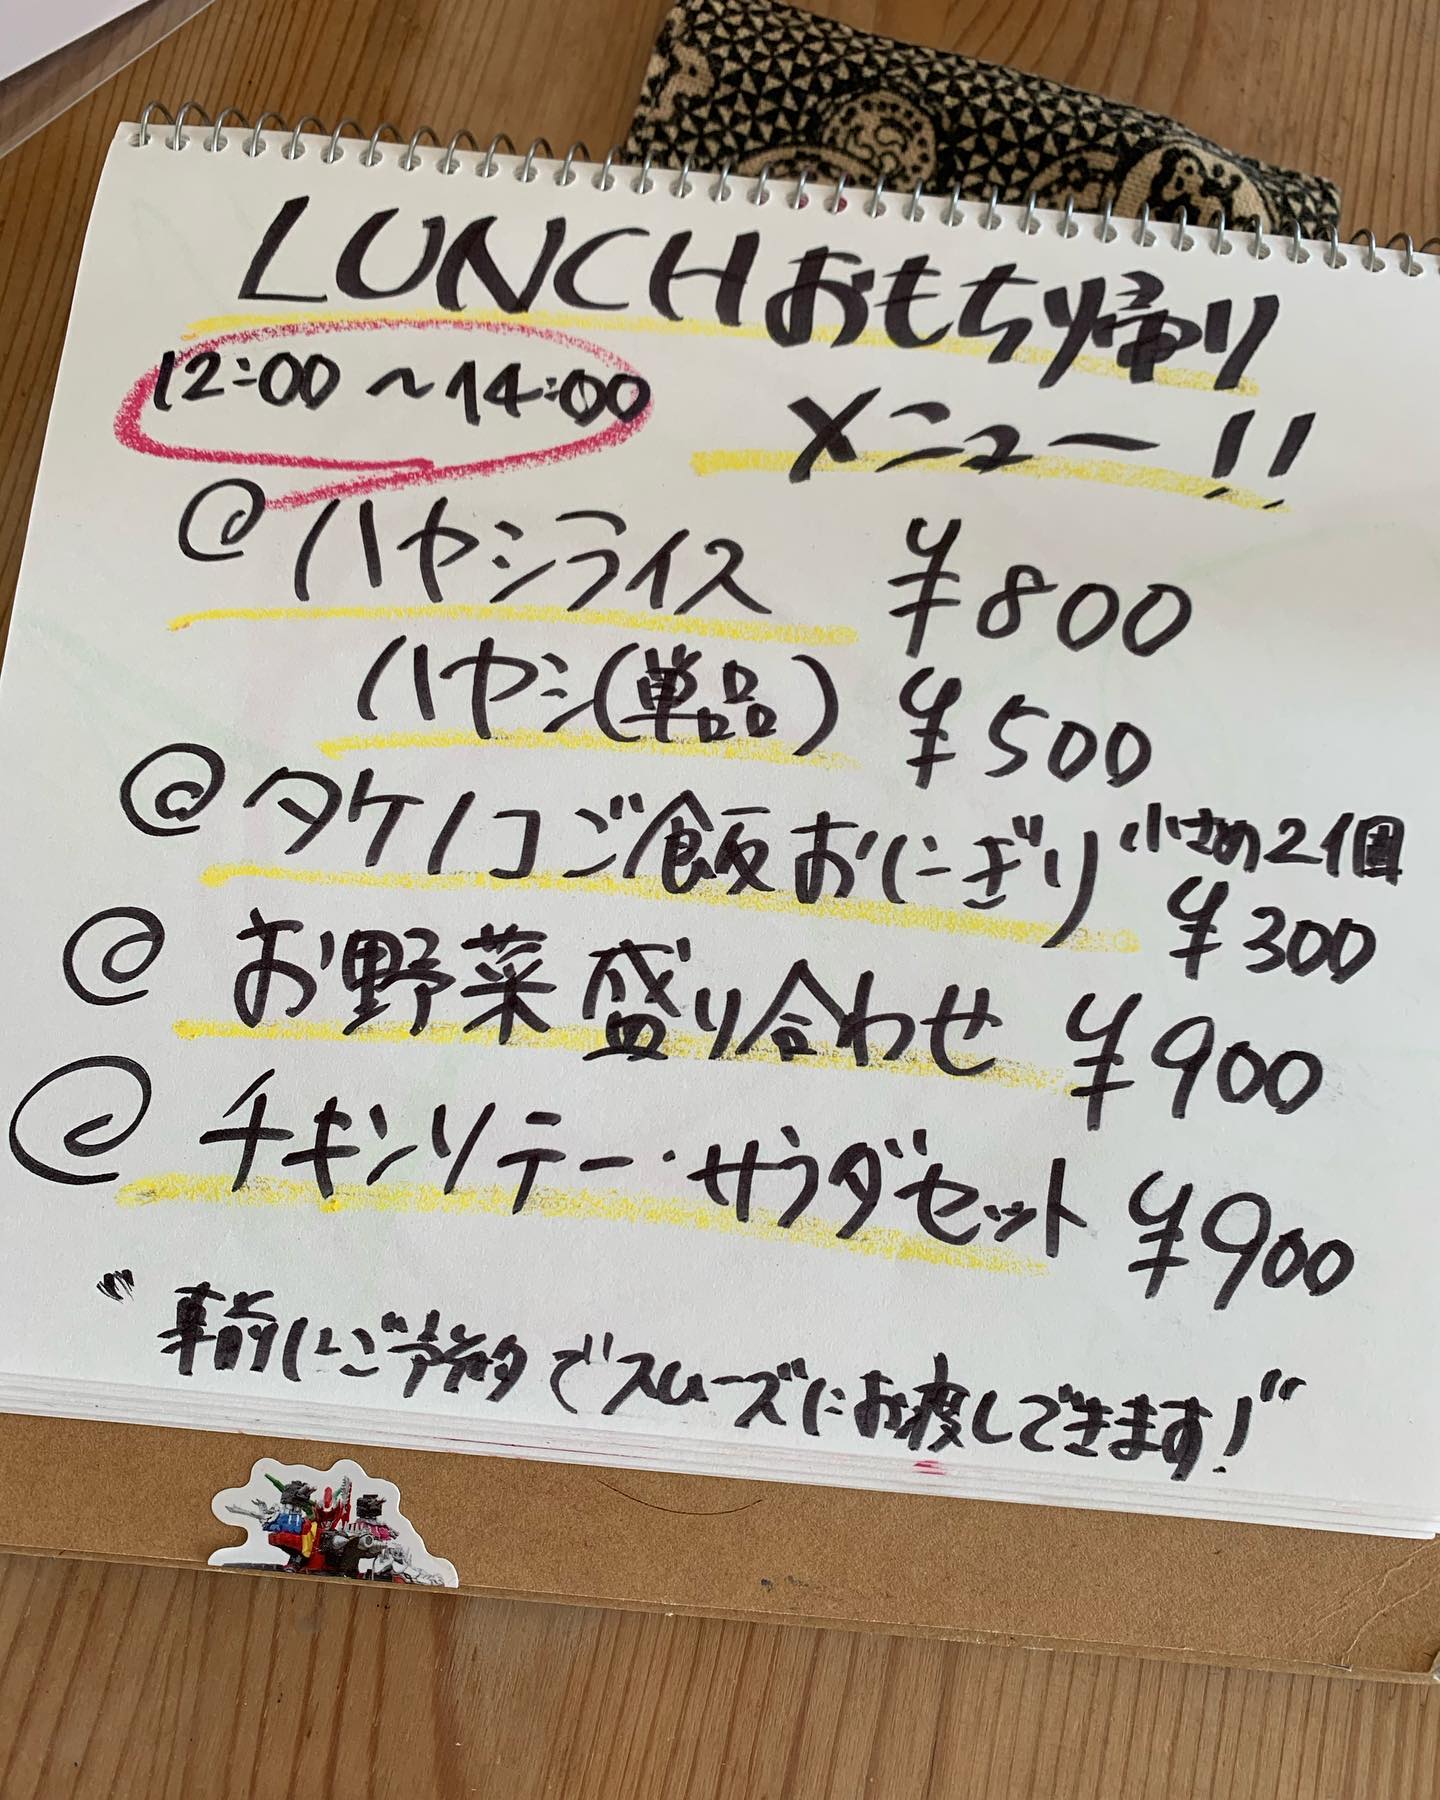 LUNCHおもち帰り
12:00～14:00 メニュー!!
@ハヤシライス ¥800
ハヤシ(単品) ¥500
@タケノコご飯おにぎり 小さめ2個 ¥300
@お野菜盛り合わせ ¥900
@チキンソテー・サラダセット ¥900
"事前にご予約でスムーズにお渡しできます!"